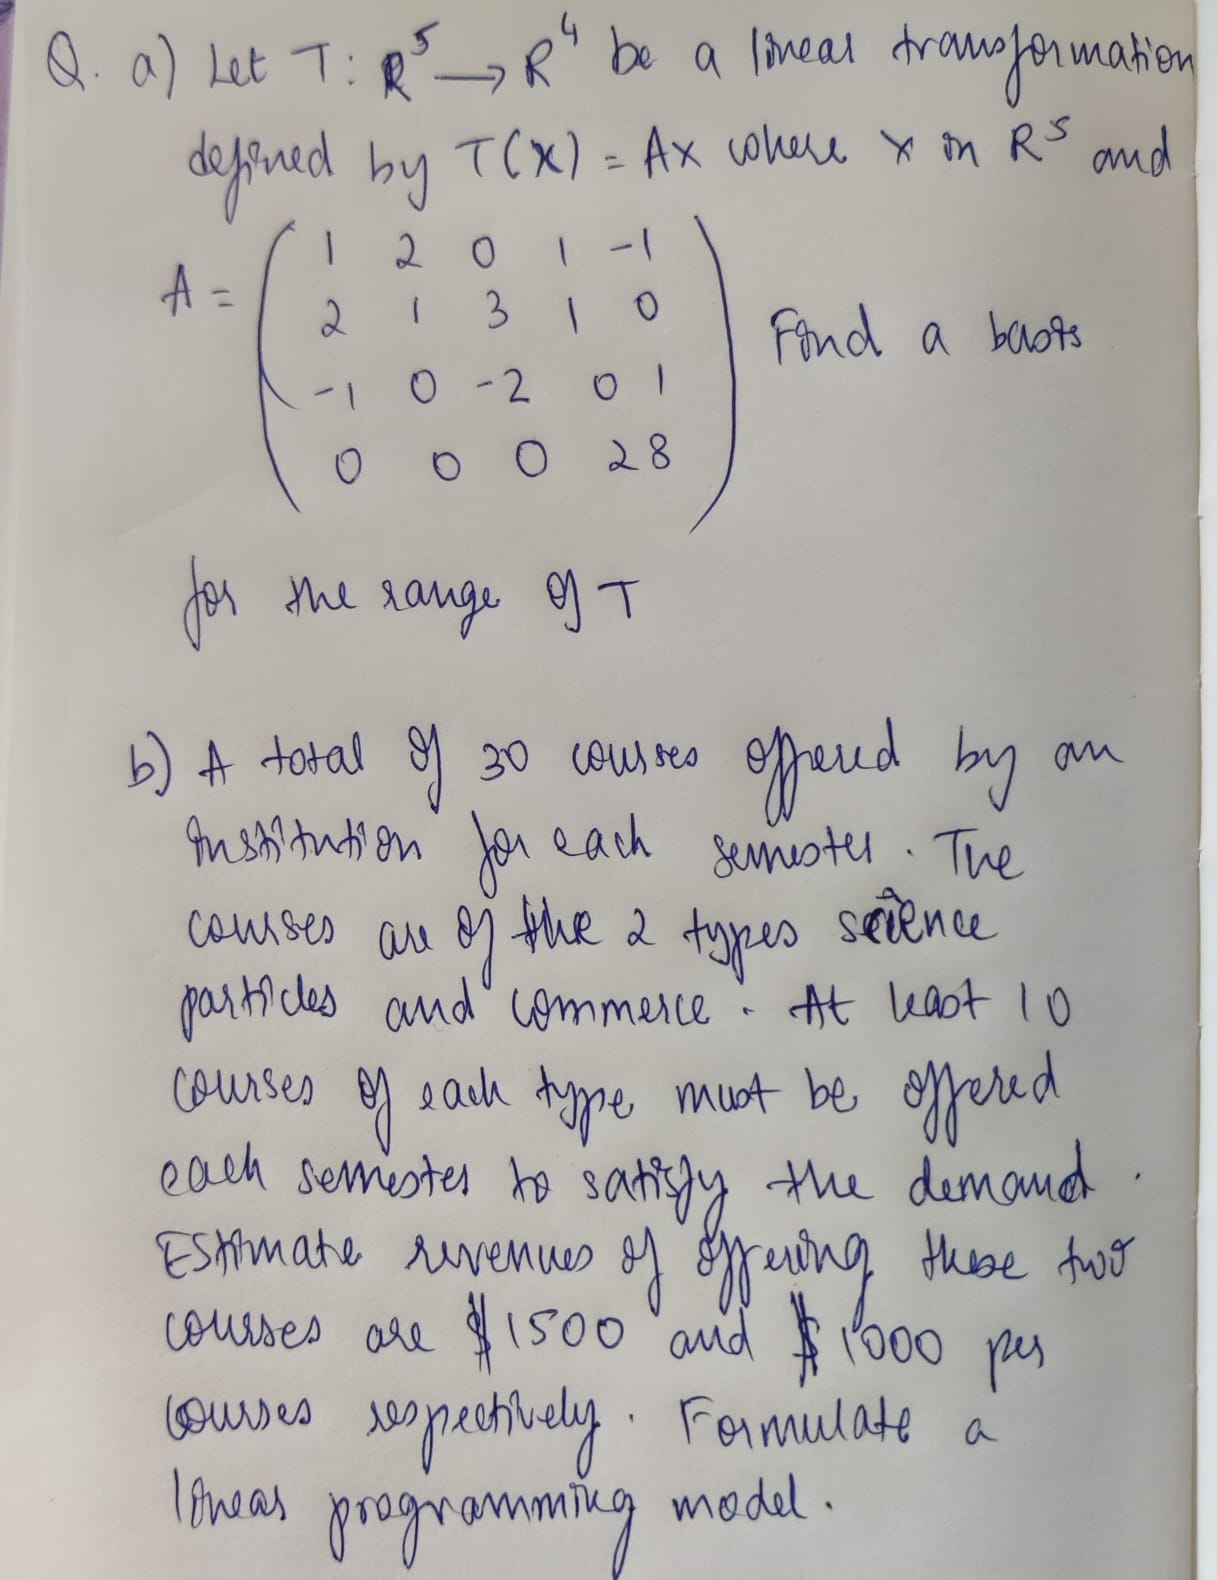 Q. a) Let T: R⁵ → R⁴ be a linear transformation
defined by T(x) = Ax where x in R⁵ and
A = ( 1 2 0 1 -1
2 1 3 1 0
-1 0 -2 0 1
0 0 0 2 8 ) Find a basis
for the range of T
b) A total of 30 courses offered by an
institution for each semester. The
courses are of the 2 types science
particles and commerce. At least 10
courses of each type must be offered
each semester to satisfy the demand.
Estimate revenues of offering these two
courses are $1500 and $1000 per
courses respectively. Formulate a
linear programming model.